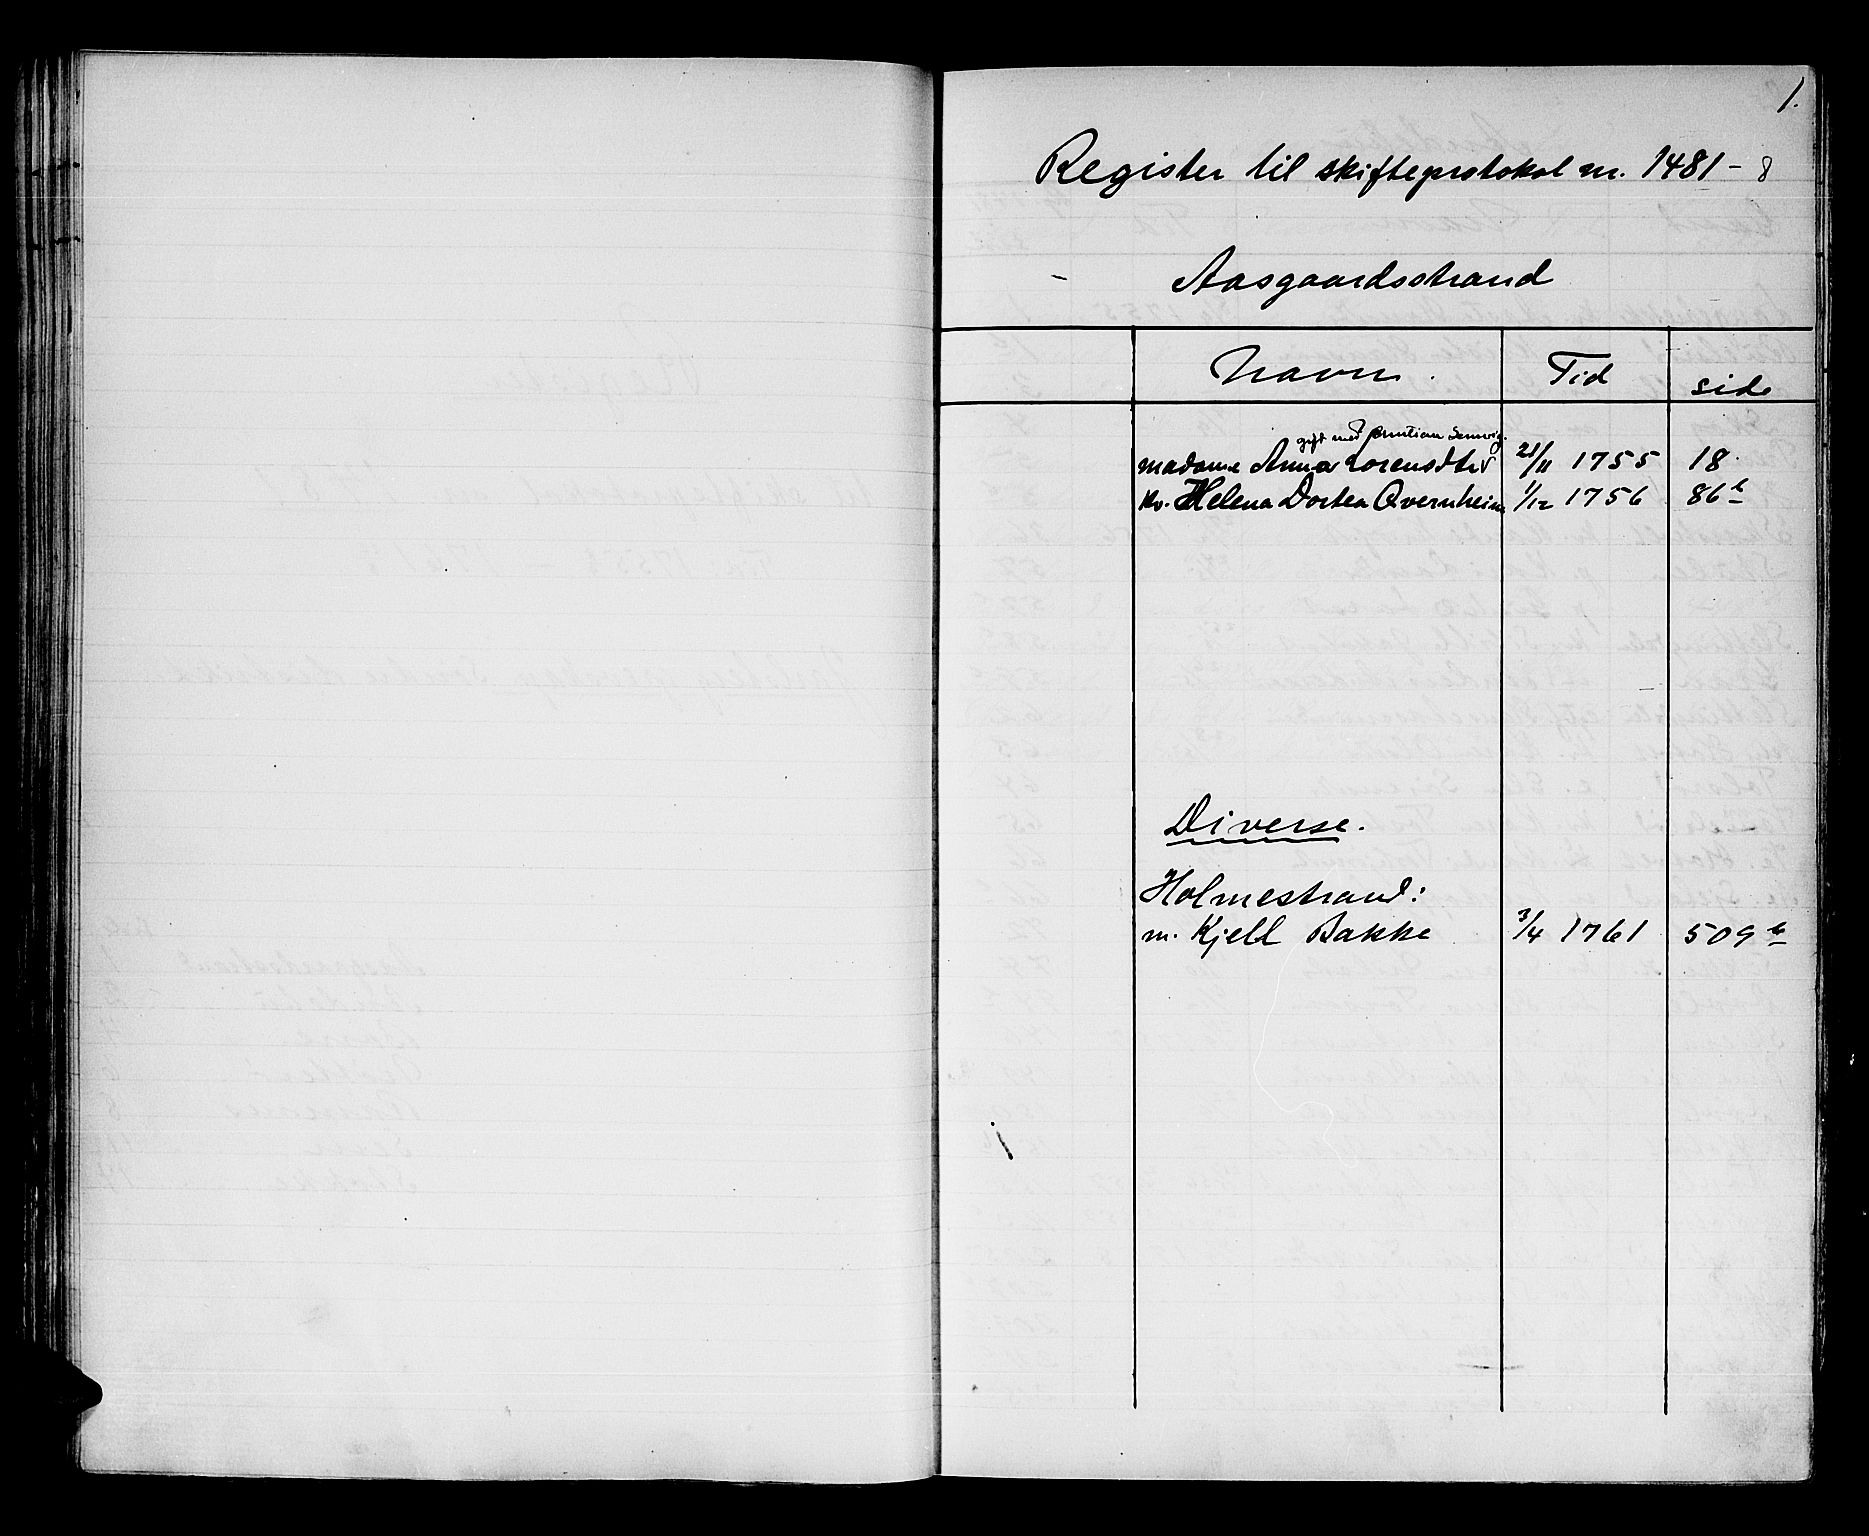 1.
Register til skifteprotokol nr. 1481 - 8
Aasgaardsstrand
Navn. Tid side
gift med
madame Anna Lorensdtr 21/11 1755 18.
kv. Helena Dortea Qvernheim 1/12 1756 86b
Diverse.
Holmestrand:
m. Kjell Bakke 3/4 1761 509b